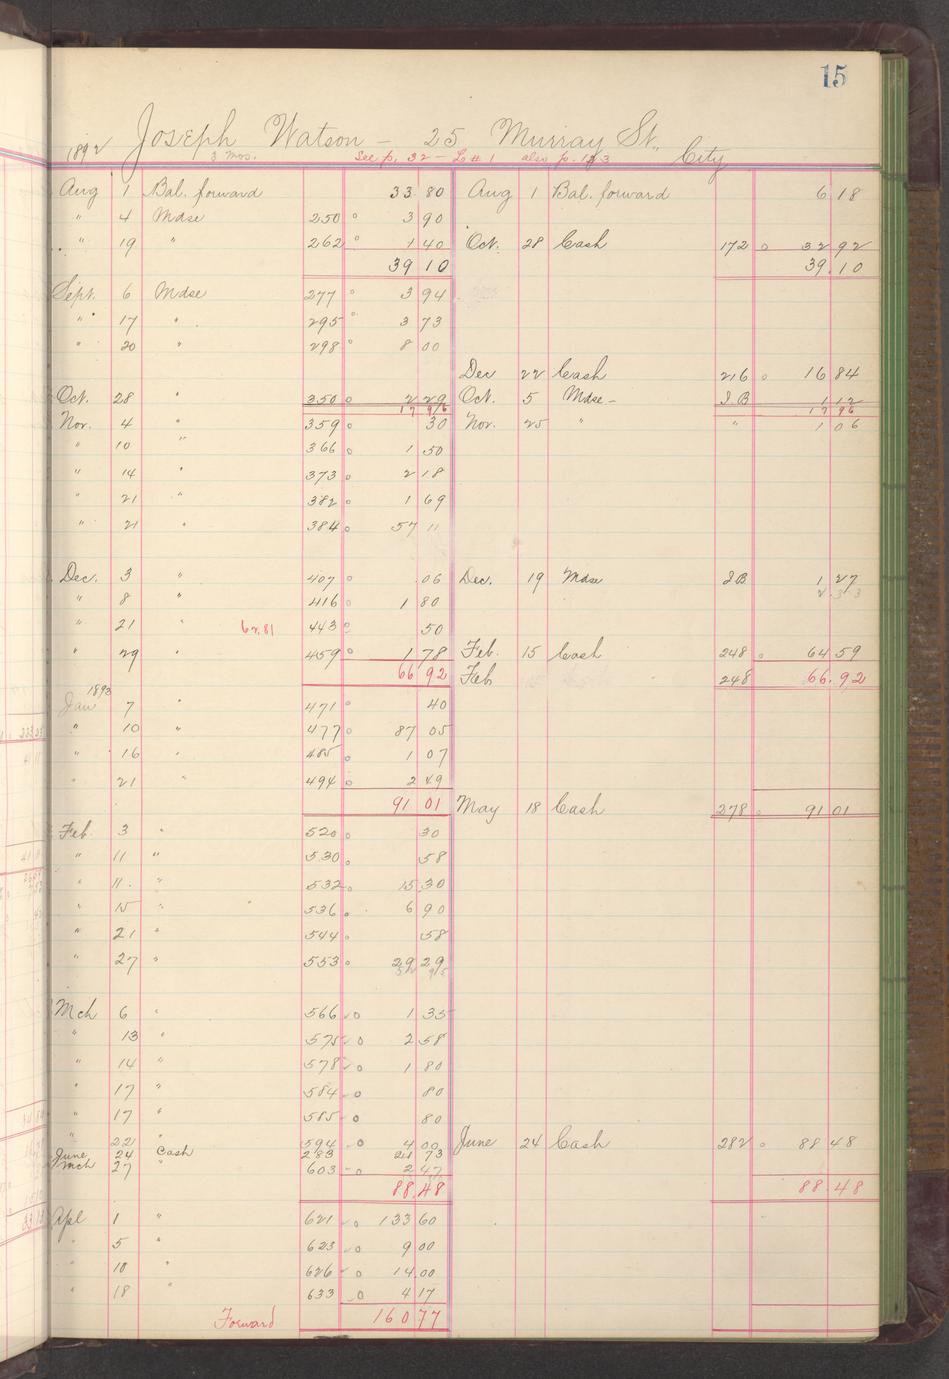 15
Joseph Watson - 25 Murray St., City
1892 3 mos. See p. 32 - L # 1 also p. 123
Aug 1 Bal. forward 33 80 Aug 1 Bal. forward 6 18
" 4 Mdse 250 3 90
" 19 " 262 1 40 Oct. 28 Cash 172 32 92
39 10 39 10
Sept. 6 Mdse 277 3 94
" 17 " 295 3 73
" 20 " 298 8 00
Dec 22 Cash 216 16 84
Oct. 28 " 350 2 29 Oct. 5 Mdse - J.B 1 12
17 96 17 96
Nov. 4 " 359 30 Nov. 25 " " 1 06
" 10 " 366 1 50
" 14 " 373 2 18
" 21 " 382 1 69
" 21 " 384 57 11
Dec. 3 " 407 06 Dec. 19 Mdse J B 1 27
" 8 " 416 1 80 2 33
" 21 " 62.81 443 50
" 29 " 459 1 78 Feb. 15 Cash 248 64 59
66 92 Feb 248 66.92
1893
Jan 7 " 471 40
" 10 " 477 87 05
" 16 " 485 1 07
" 21 " 494 2 49
91 01 May 18 Cash 278 91 01
Feb. 3 " 520 30
" 11 " 530 58
" 11. " 532 15 30
" 15 " 536 6 90
" 21 " 544 58
" 27 " 553 29 29
52 95
Mch 6 " 566 1 35
" 13 " 575 2 58
" 14 " 578 1 80
" 17 " 584 80
" 17 " 585 80
" 22 " 594 4 00 June 24 Cash 282 88 48
June 24 Cash 283 21 73
Mch 27 " 603 2 47
88.48 88.48
Apl 1 " 621 133 60
" 5 " 623 9 00
" 10 " 626 14.00
" 18 " 633 4 17
Forward 160 77